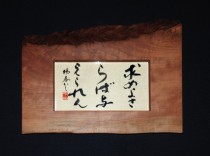 求めよさ
らば与
えられん